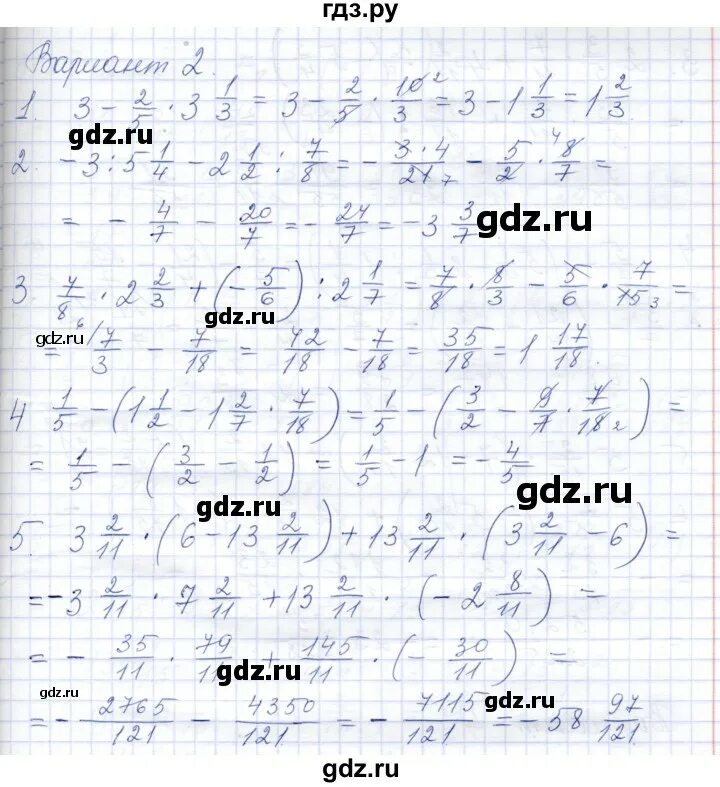 гдз.ру
Вариант 2.
1. 3 - 2/5 · 3 1/3 = 3 - 2/5 · 10²/3 = 3 - 1 1/3 = 1 2/3.
gdz.ru
2. -3 : 5 1/4 - 2 1/2 : 7/8 = - 3·4/21 7 - 5/2 · 4 8/7 =
= - 4/7 - 20/7 = - 24/7 = -3 3/7
gdz.ru
gdz.ru
3 7/8 · 2 2/3 + (- 5/6) : 2 1/7 = 7/8 · 8/3 - 5/6 · 7/15 3 =
gdz.ru
gdz.ru
= 6/ 7/3 - 7/18 = 42/18 - 7/18 = 35/18 = 1 17/18.
4 1/5 - (1 1/2 - 1 2/7 · 7/18) = 1/5 - (3/2 - 9/7 · 7/18 2) =
gdz.ru
= 1/5 - (3/2 - 1/2) = 1/5 - 1 = - 4/5
gdz.ru
gdz.ru
5. 3 2/11 · (6 - 13 2/11) + 13 2/11 · (3 2/11 - 6) =
= -3 2/11 · 7 2/11 + 13 2/11 · (-2 8/11) =
= - 35/11 · 79/11 + 145/11 · (- 30/11) =
gdz.ru
gdz.ru
= - 2765/121 - 4350/121 = - 7115/121 = -58 97/121.
gdz.ru
gdz.ru